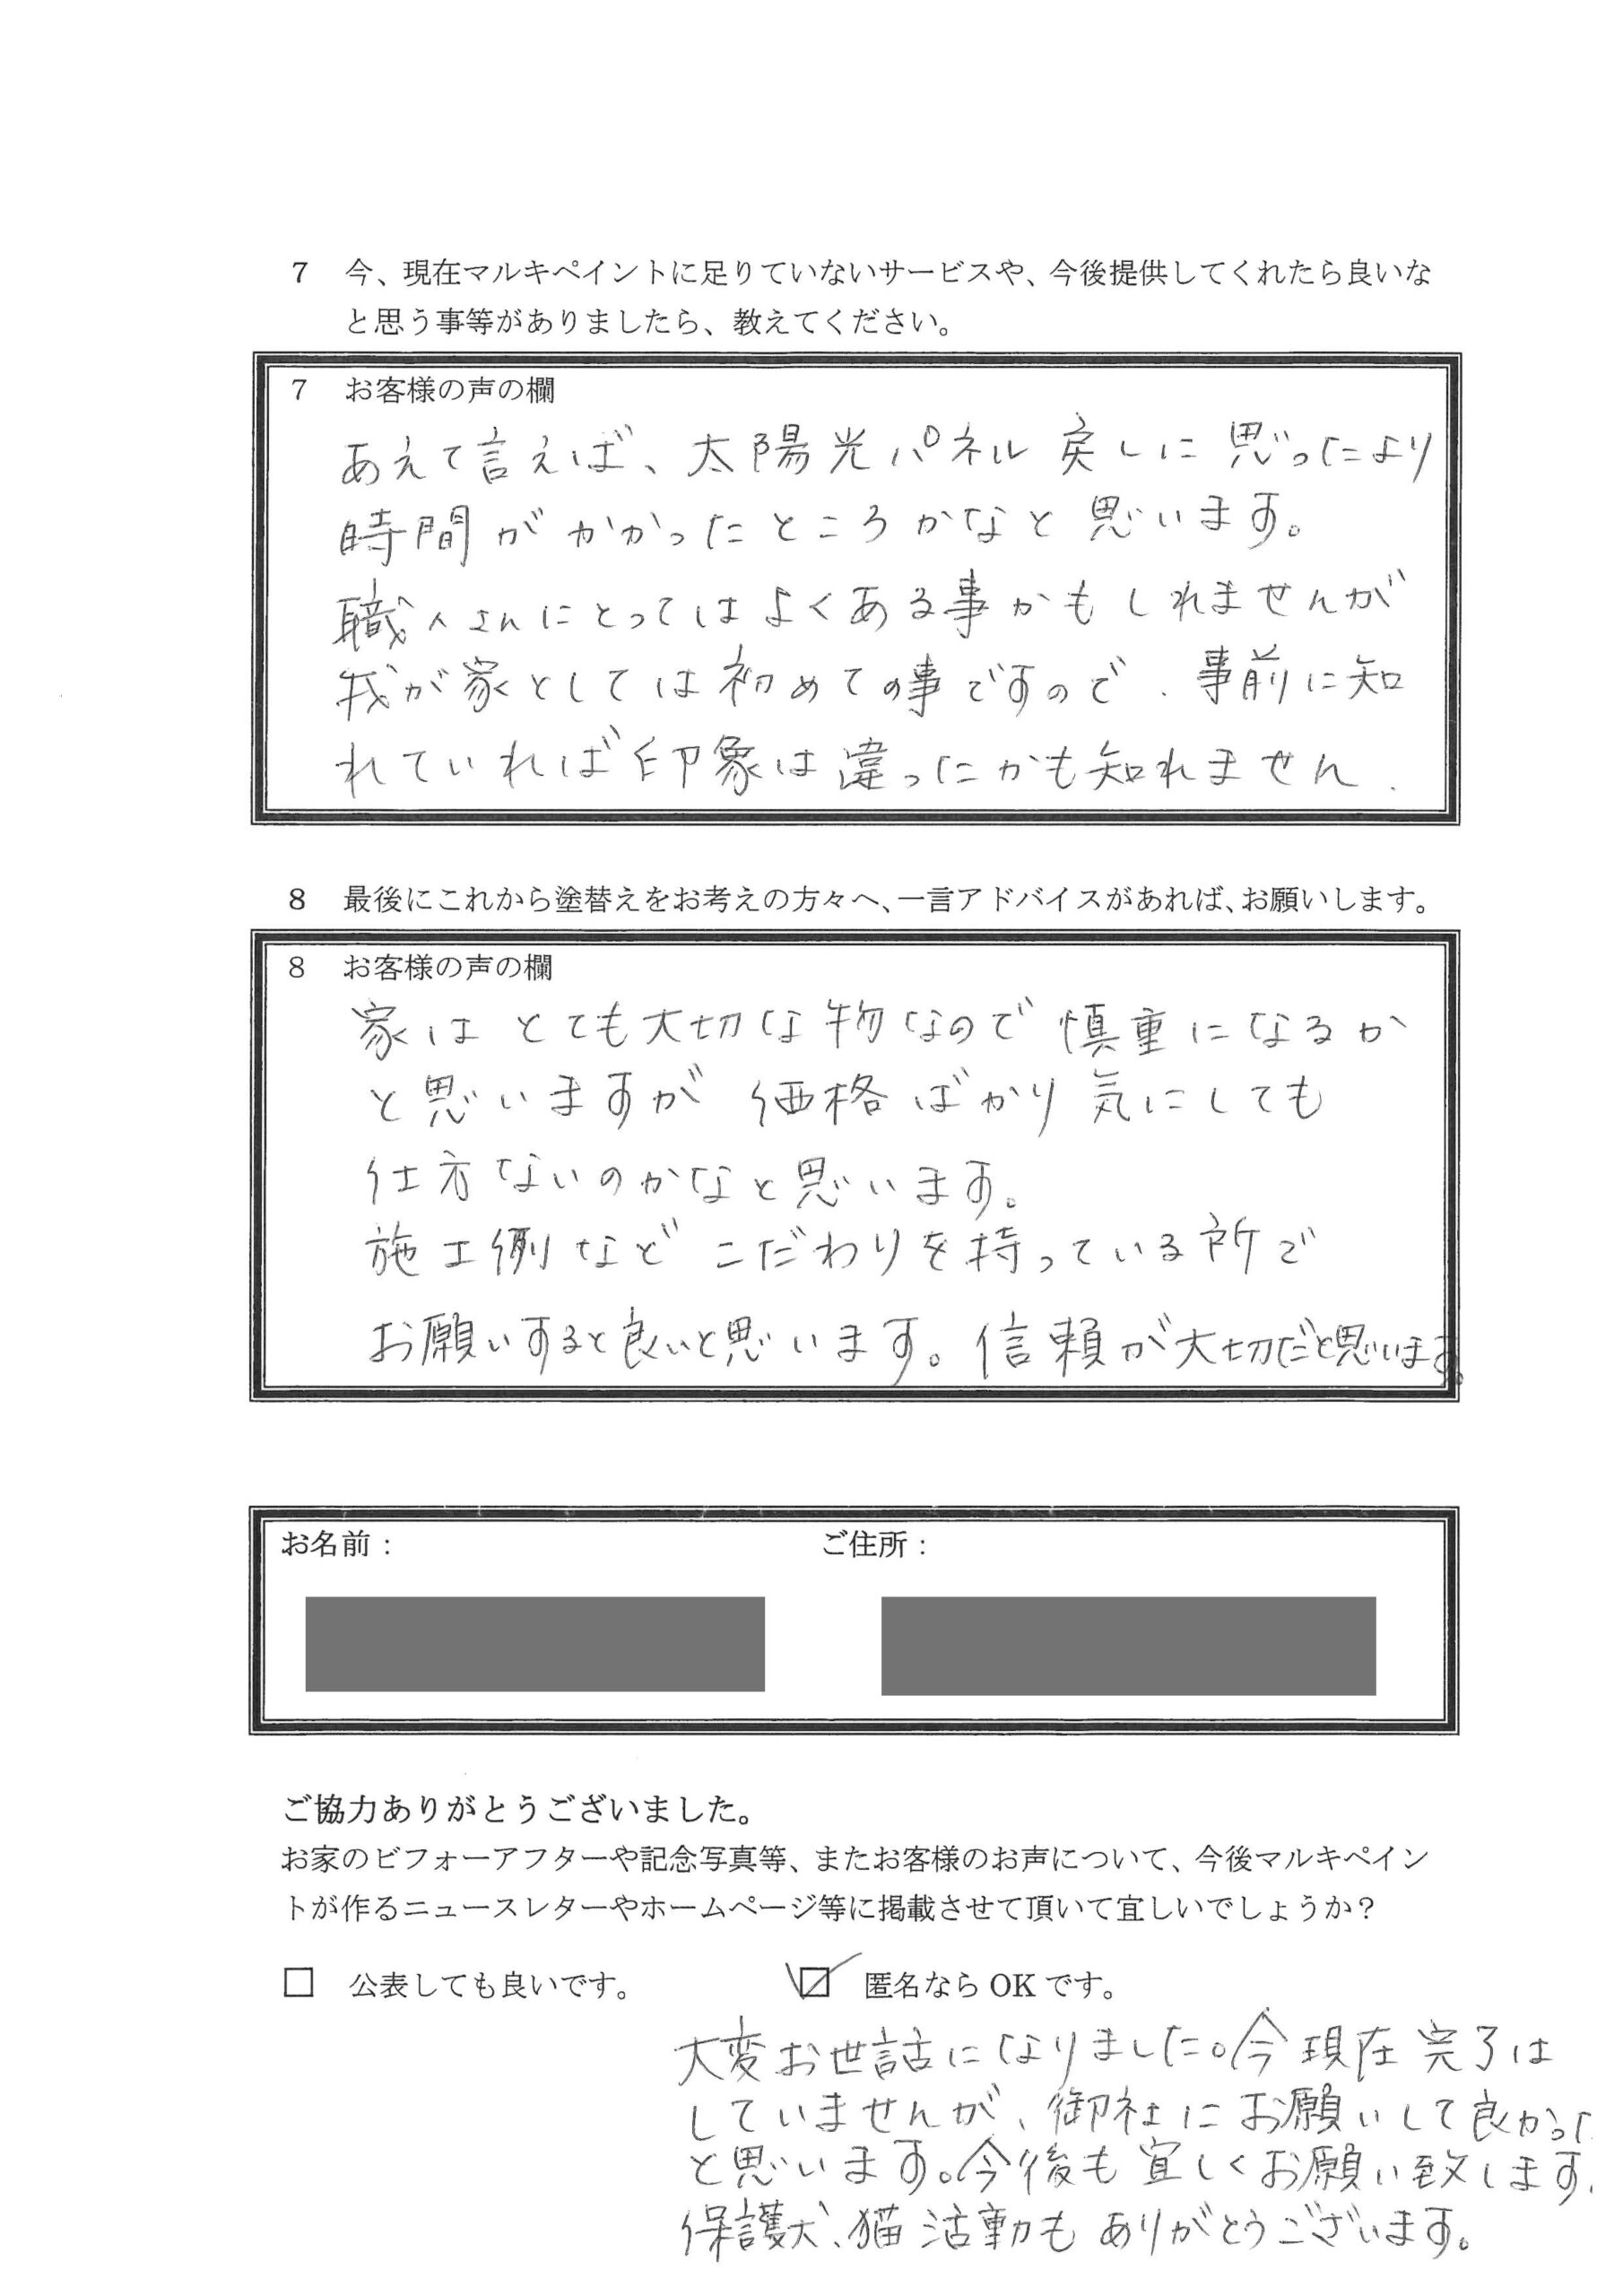 7 今、現在マルキペイントに足りていないサービスや、今後提供してくれたら良いな
と思う事等がありましたら、教えてください。
7 お客様の声の欄
あえて言えば、太陽光パネル戻しに思ったより
時間がかかったところかなと思います。
職人さんにとってはよくある事かもしれませんが
我が家としては初めての事ですので、事前に知
れていれば印象は違ったかも知れません.
8 最後にこれから塗替えをお考えの方々へ、一言アドバイスがあれば、お願いします。
8 お客様の声の欄
家はとても大切な物なので慎重になるか
と思いますが 価格ばかり気にしても
仕方ないのかなと思います。
施工例などこだわりを持っている所で
お願いすると良いと思います。信頼が大切だと思います。
お名前： ご住所：
ご協力ありがとうございました。
お家のビフォーアフターや記念写真等、またお客様のお声について、今後マルキペイン
トが作るニュースレターやホームページ等に掲載させて頂いて宜しいでしょうか？
□ 公表しても良いです。 ☑ 匿名なら OK です。
大変お世話になりました。今現在完了は
していませんが、御社にお願いして良かった
と思います。今後も宜しくお願い致します.
保護犬、猫活動もありがとうございます。